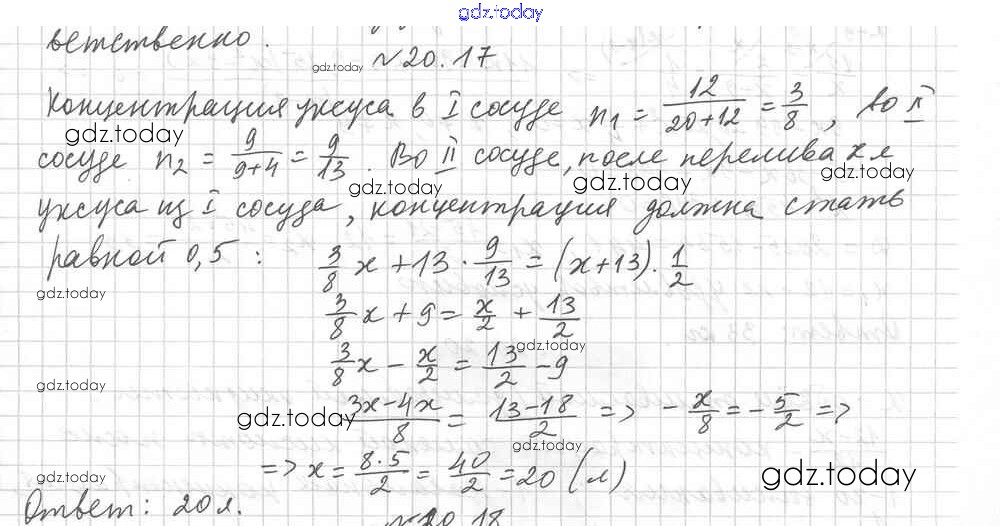 gdz.today
ветственно.
№20.17
gdz.today
Концентрация уксуса в I сосуде n₁ = 12/(20+12) = 3/8, во II
gdz.today
сосуде n₂ = 9/(9+4) = 9/13. Во II сосуде, после перелива x л
gdz.today gdz.today gdz.today
уксуса из I сосуда, концентрация должна стать
равной 0,5: 3/8 x + 13 · 9/13 = (x+13) · 1/2
gdz.today
3/8 x + 9 = x/2 + 13/2
gdz.today
3/8 x − x/2 = 13/2 − 9
gdz.today
(3x−4x)/8 = (13−18)/2 => −x/8 = −5/2 =>
gdz.today gdz.today
=> x = 8·5/2 = 40/2 = 20 (л)
gdz.today gdz.today
Ответ: 20 л.
№20.18